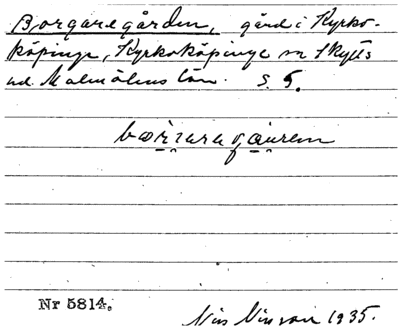 Borgaregården, gård i Kyrko-
köpinge, Kyrkoköpinge sn Skytts
hd. Malmöhus län. S. 5.
Nr 5814.
Nils Ninson 1935.